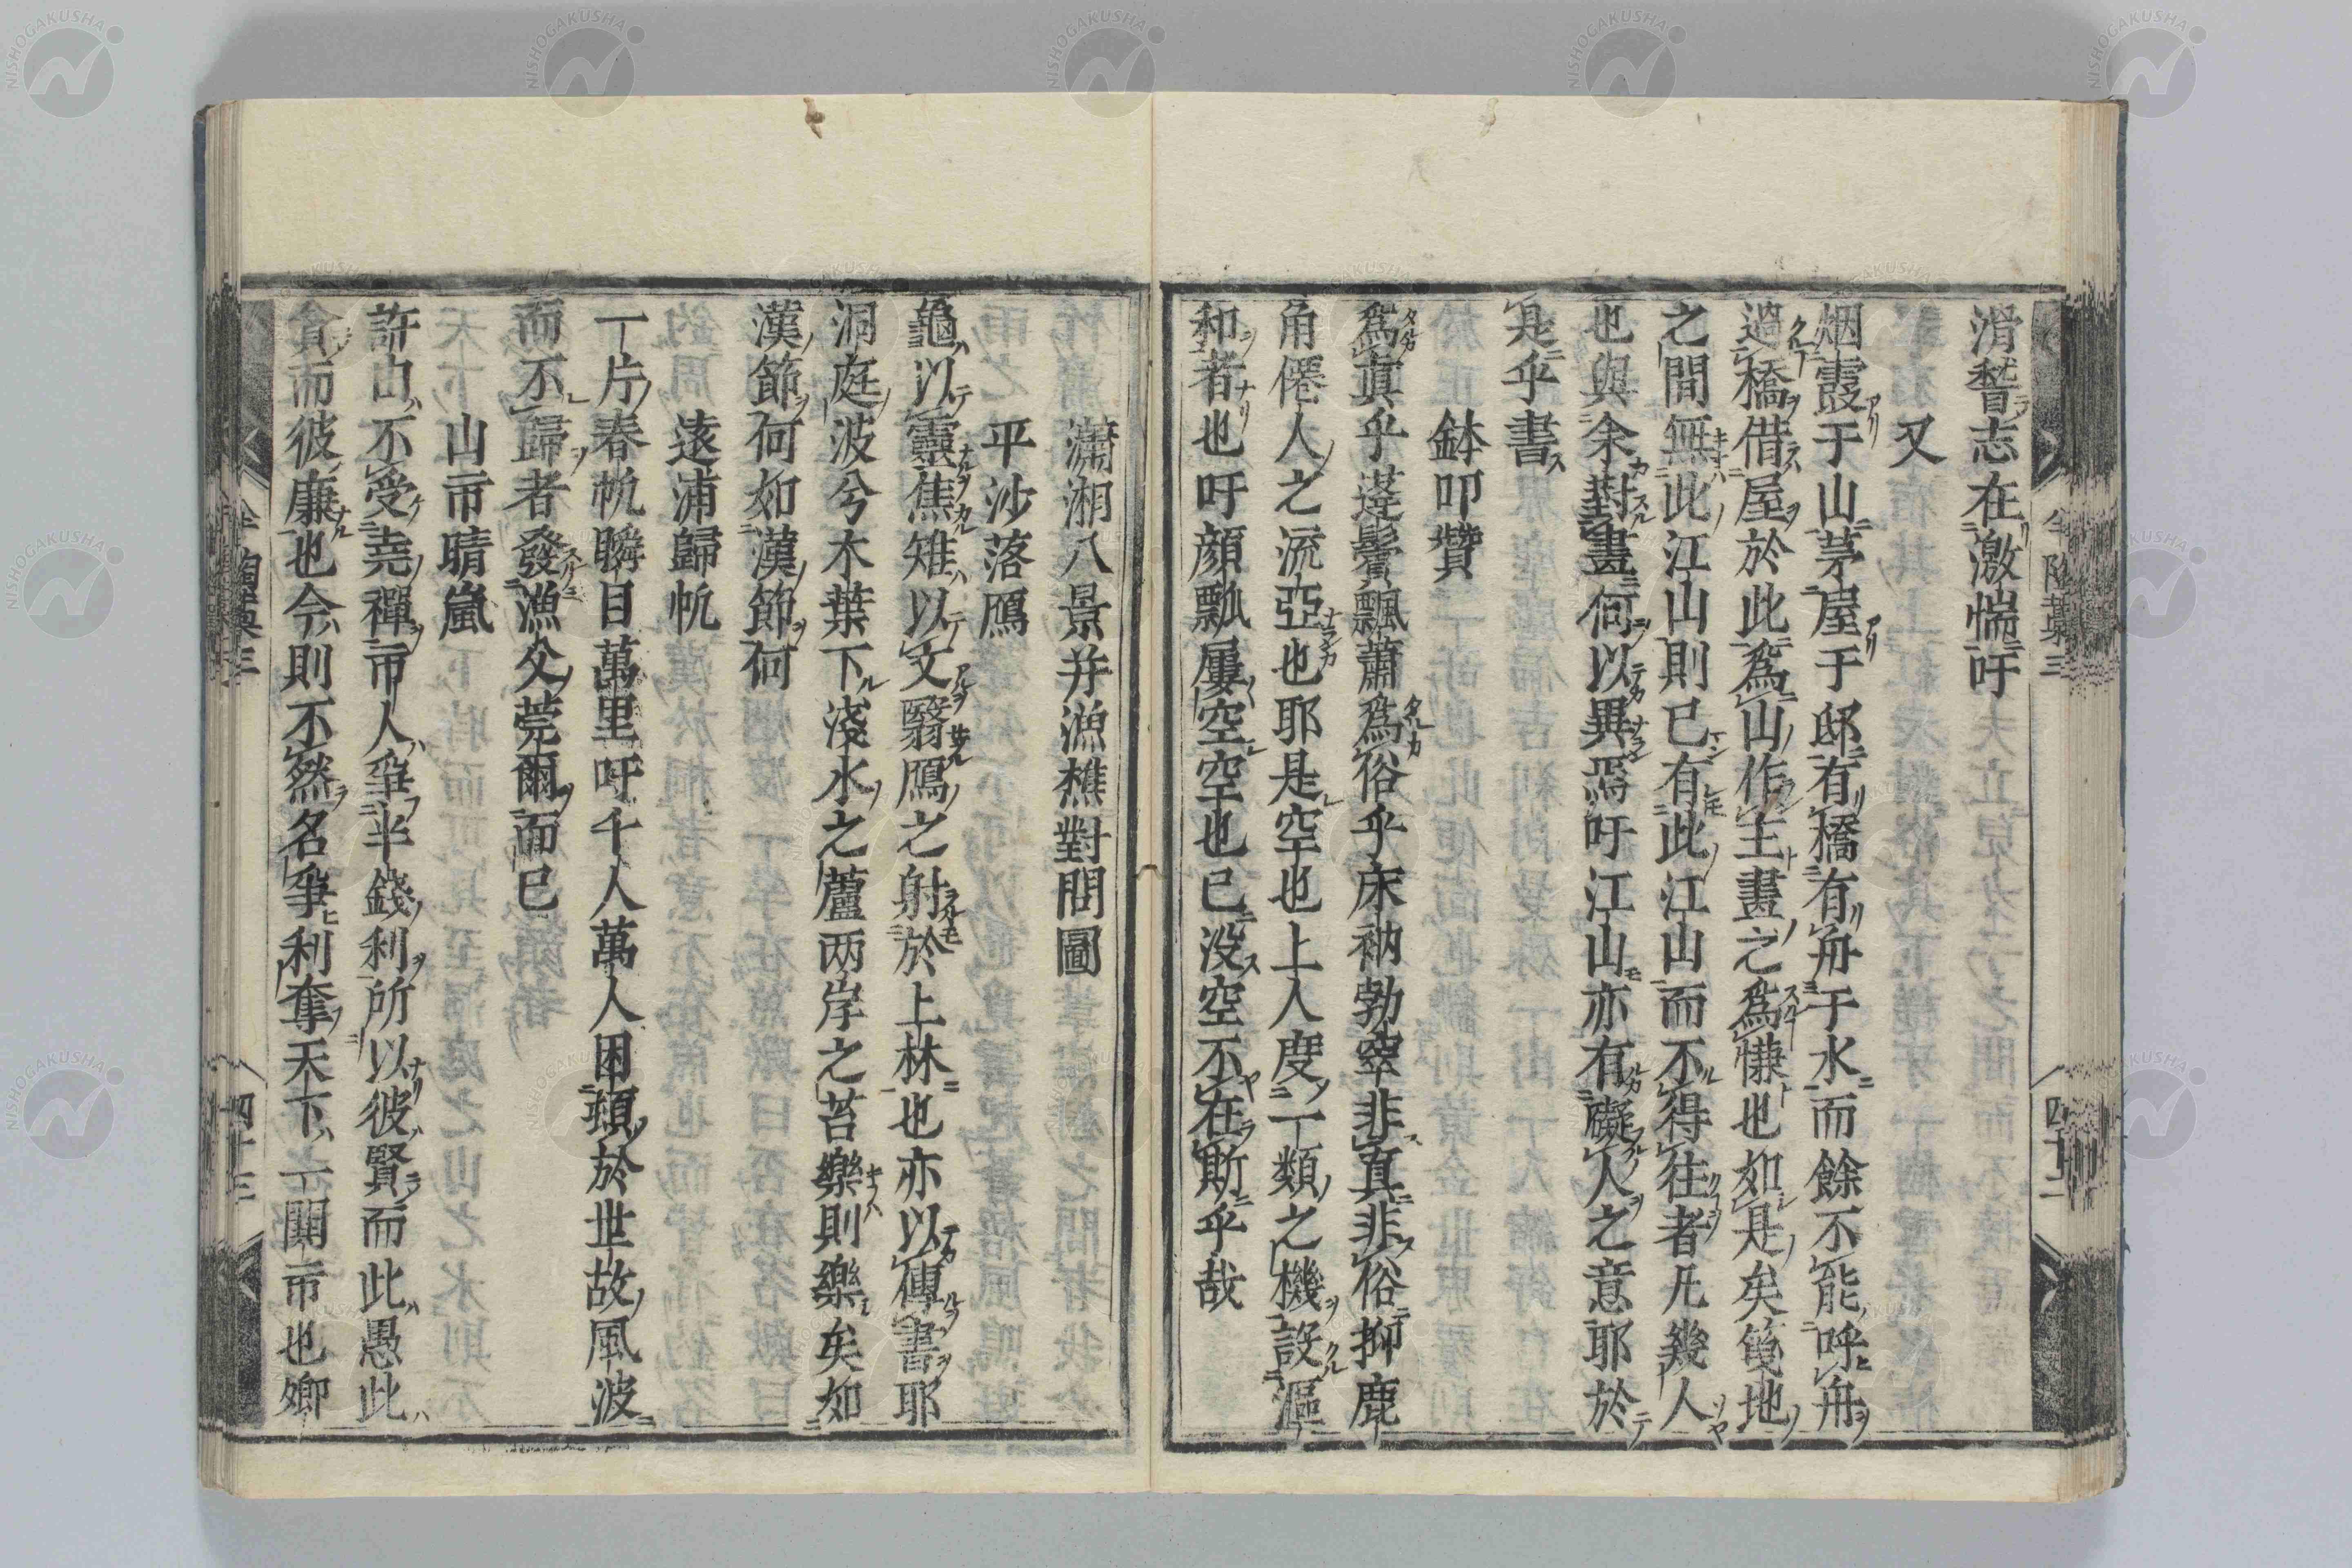 滑稽志在激惴吁
又
烟霞于山茅屋于邸有橋有舟于水而餘不能呼舟
過橋借屋於此爲山作主畫之爲慊也如是矣筧地
之間無此江山則已有此江山而不得往者凡幾人
也與余對畫何以異焉吁江山亦有礙人之意耶於
是乎書
鉢叩贊
爲眞乎蓬鬢飄蕭爲俗乎床衲勃窣非真非俗抑鹿
角僊人之流亞也耶是空也上人度一類之機設漚
和者也吁顔瓢屢空空也已没空不在斯乎哉
四十二
瀟湘八景并漁樵對問圖
平沙落鴈
龜以靈焦雉以文翳鴈之射於上林也亦以傳書耶
洞庭波兮木葉下淺水之蘆两岸之苔樂則樂矣如
漢節何如漢節何
遠浦歸帆
一片春帆瞬目萬里吁千人萬人困頓於世故風波
而不歸者發漁父莞爾而已
山市晴嵐
許由不受堯禪市人爭半錢利所以彼賢而此愚此
貪而彼廉也今則不然名爭利奪天下一閧市也鄉
四十三
NISHOGAKUSHA